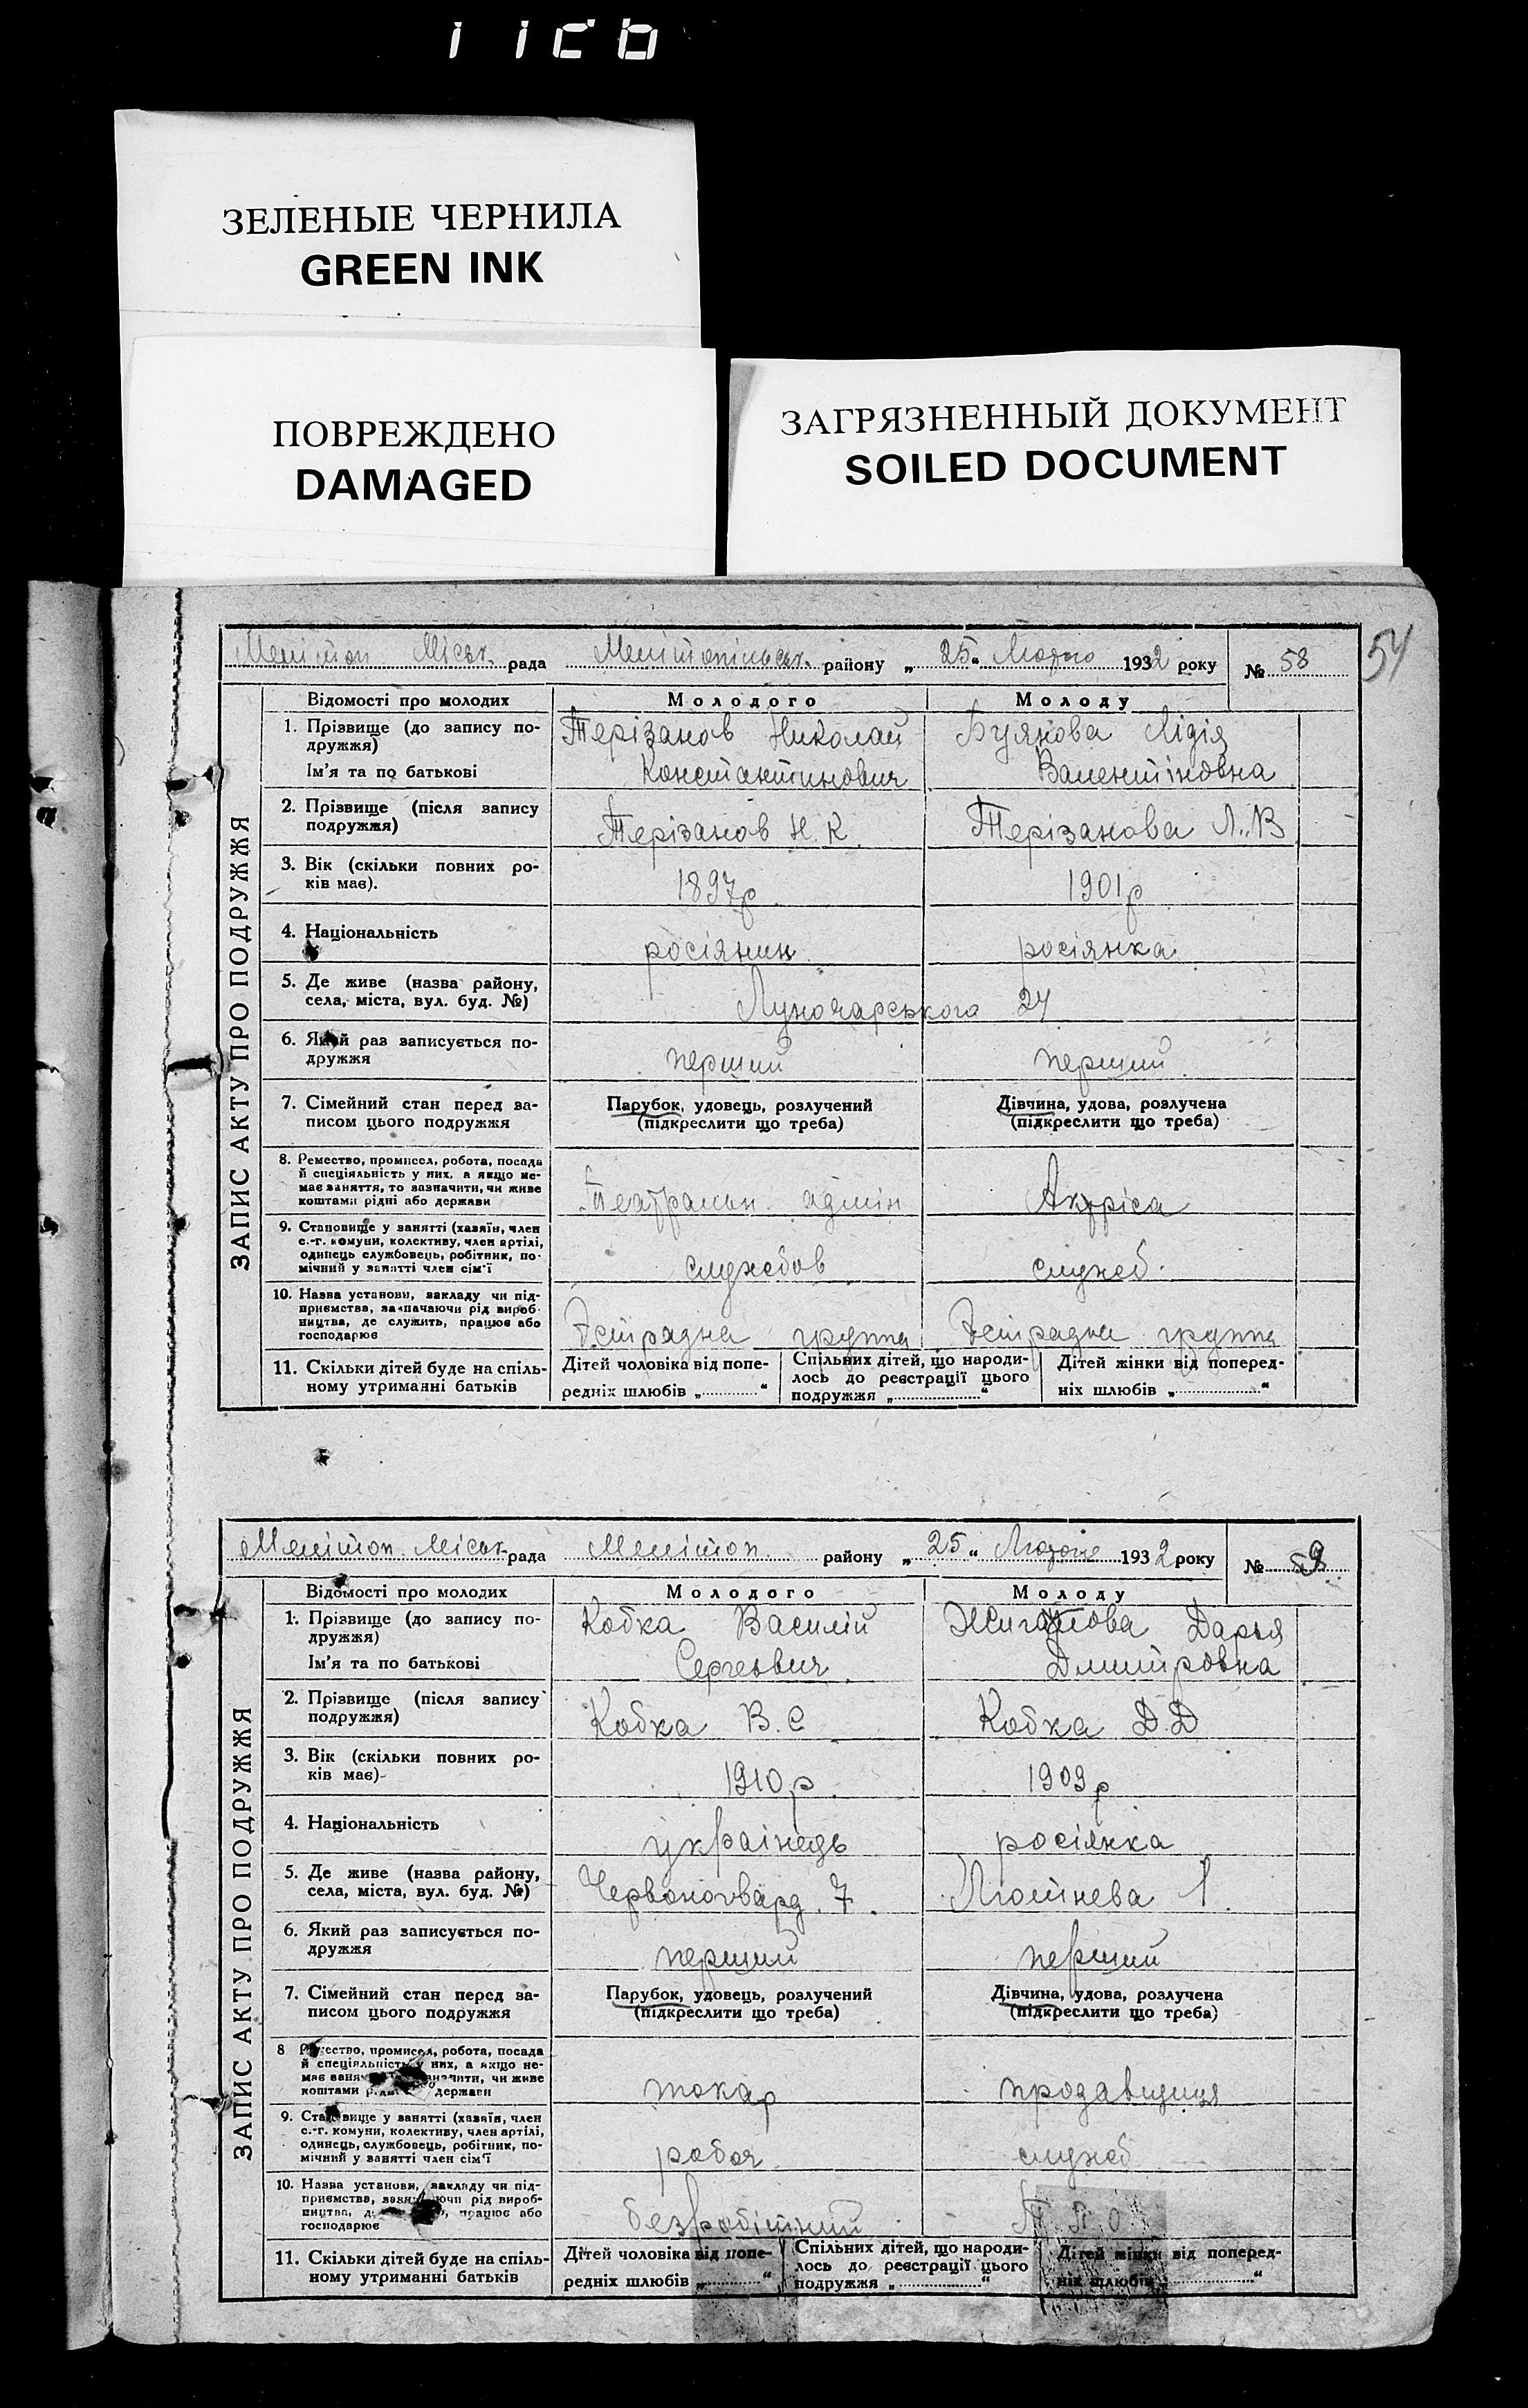 ЗЕЛЕНЫЕ ЧЕРНИЛА
GREEN INK
ПОВРЕЖДЕНО
DAMAGED
ЗАГРЯЗНЕННЫЙ ДОКУМЕНТ
SOILED DOCUMENT
54
ЗАПИС АКТУ ПРО ПОДРУЖЖЯ
Мелітоп Міськ. рада Мелітопільськ. району „ 25 “ Лютого 1932 року № 58
Відомості про молодих Молодого Молоду
1. Прізвище (до запису подружжя) Терізанов Николай Буянова Лідія
Ім'я та по батькові Константинович Валентіновна
2. Прізвище (після запису подружжя) Терізанов Н. К. Терізанова Л. В
3. Вік (скільки повних років має). 1897р 1901р
4. Національність росіянин росіянка
5. Де живе (назва району, села, міста, вул. буд. №) Луночарського 24
6. Який раз записується подружжя перший перший
7. Сімейний стан перед записом цього подружжя Парубок, удовець, розлучений (підкреслити що треба) Дівчина, удова, розлучена (підкреслити що треба)
8. Ремество, промисел, робота, посада й спеціяльність у них, а якщо немає заняття, то зазначити, чи живе коштами рідні або держави Театральн. адмін Актріса
9. Становище у занятті (хазяїн, член с.-г. комуни, колективу, член артілі, одинець службовець, робітник, помічний у занятті член сім'ї службов служб.
10. Назва установи, закладу чи підприємства, зазначаючи рід виробництва, де служить, працює або господарює Естрадна группа Естрадна группа
11. Скільки дітей буде на спільному утриманні батьків Дітей чоловіка від попередніх шлюбів „ “ Спільних дітей, що народилось до реєстрації цього подружжя „ “ Дітей жінки від попередніх шлюбів „ “
ЗАПИС АКТУ ПРО ПОДРУЖЖЯ
Мелітоп. Міськ рада Мелітоп. району „ 25 “ 1932 року № 59
Відомості про молодих Молодого Молоду
1. Прізвище (до запису подружжя) Кобка Василій Дарья
Ім'я та по батькові Сергеевич Дмитровна
2. Прізвище (після запису подружжя) Кобка В. С Кобка Д. Д
3. Вік (скільки повних років має) 1910 р. 1909 р
4. Національність українець росіянка
5. Де живе (назва району, села, міста, вул. буд. №) Червоногвард. 7. 1.
6. Який раз записується подружжя перший перший
7. Сімейний стан перед записом цього подружжя Парубок, удовець, розлучений (підкреслити що треба) Дівчина, удова, розлучена (підкреслити що треба)
8 Ремество, промисел, робота, посада й спеціяльність у них, а якщо немає коштами держави токар продавщиця
9. Становище у занятті (хазяїн, член с.-г. комуни, колективу, член артілі, одинець, службовець, робітник, помічний у занятті член сім'ї робоч служб
10. Назва установи, закладу чи підприємства, рід виробництва, працює або господарює безробітний
11. Скільки дітей буде на спільному утриманні батьків Дітей чоловіка від попередніх шлюбів „ “ Спільних дітей, що народилось до реєстрації цього подружжя „ “ Дітей жінки від попередніх шлюбів „ “